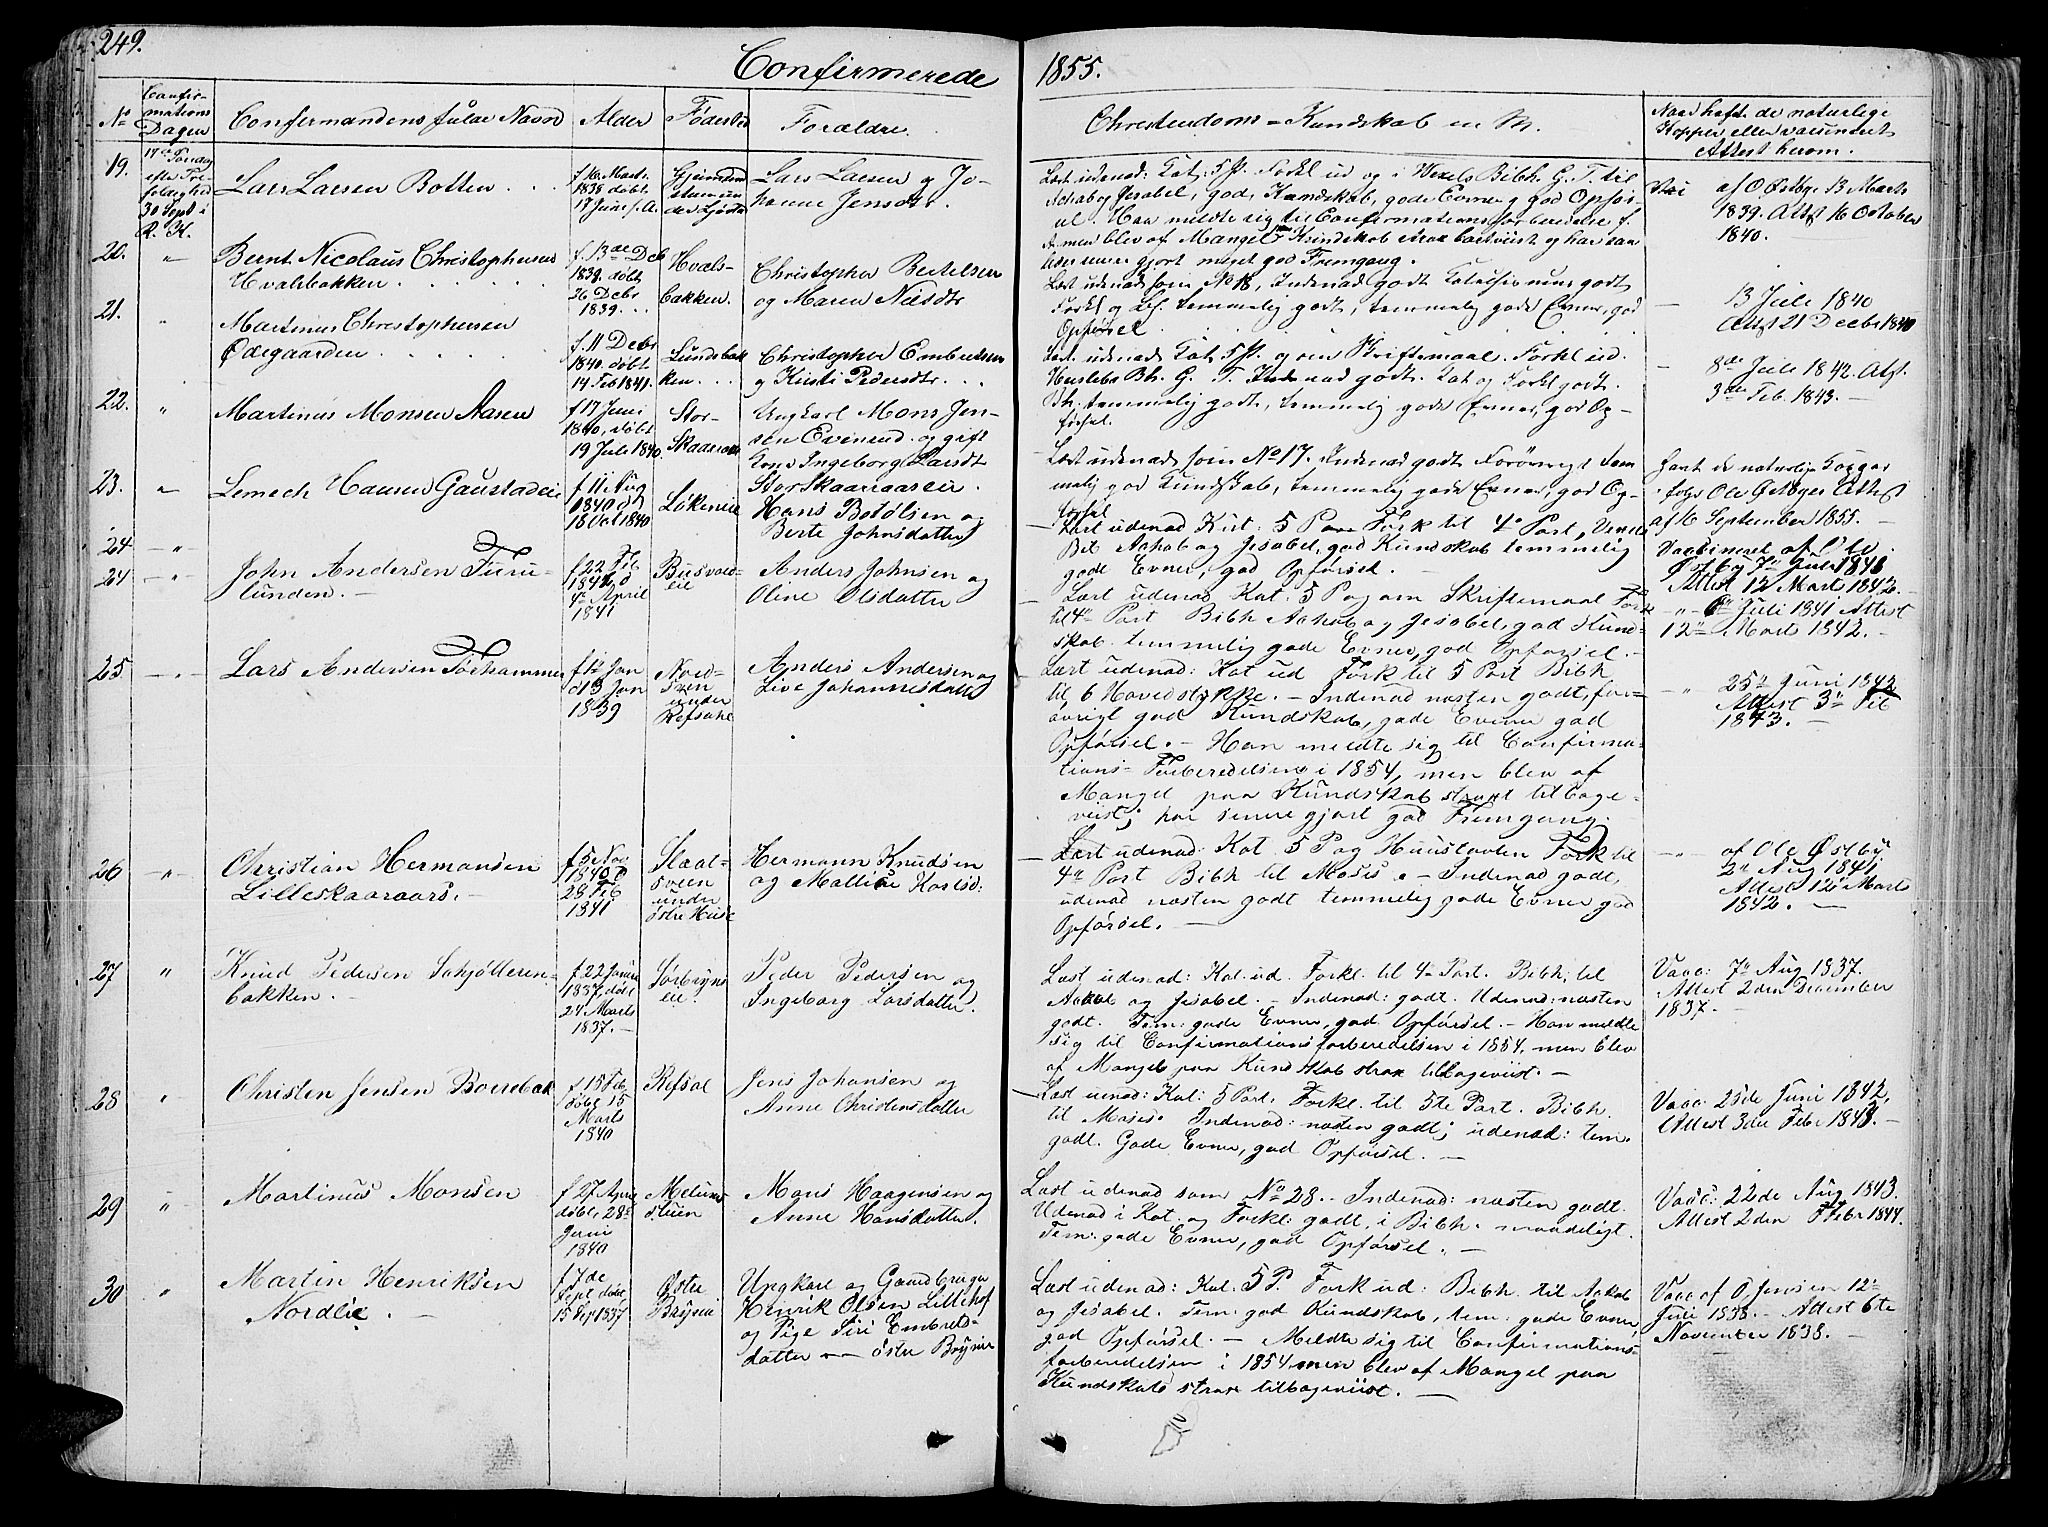 249.
Confirmerede
1855.
No
Confir-
mations
Dagen
Confirmandens fulde Navn
Alder
Fødested
Forældre.
Christendoms-Kundskab en M.
Naar haft de naturlige
Kopper eller vaccineret
Attest herom.
19.
30 Sept i
R. K.
Lars Larsen Botten . . .
f. 16 Marts
1838 døbt
17 Juni s. A.
Lars Larsen og Jo-
hanne Jensdtr.
Læst udenad: Kat: 5 P. Forkl ud og i Wexels Bibh. G. T. til
Achab og Jesabel, god Kundskab, gode Evner og god Opfør-
sel. Han meldte sig til Confirmationsforberedelse f.
men blev af Mangel Kundskab strax bortviist og har saa
gjort meget god Fremgang.
af O Østbye 13 Marts
1839. Attst 16 October
1840.
20.
"
Bernt Nicolaus Christophersen
Hvalsbakken . . . . .
f. 13de Deb
1839. døbt
26 Debr
1839. . .
Hvals-
bakken.
Christopher Bertelsen
og Maren Nilsdtr
Læst udenad som No 18, Indenad godt Catechismus godt
Forkl og Bh. temmelig godt, temmelig gode Evner, god
Opførsel
13 Juli 1840
Attst 21 Decbr 1840
21.
"
Martinus Christophersen
Ødegaarden . . . . .
f. 11 Decbr
1840. døbt
14 Feb 1841.
Lundsbak
ken. . .
Christopher Embretsen
og Kirsti Pedersdtr. . .
Læst udenad Kat. 5 P. og om Skriftemaal. Forkl ud.
Bh. G. T. Indenad godt. Cat og Forkl godt.
Bh. temmelig godt, temmelig gode Evner, god Op-
førsel.
8de Juli 1842. Atst.
3die Feb. 1843. —
22.
"
Martinus Monsen Aasen
f 17 Juni
1840, døbt
19 Juli 1840.
Stor-
Skaaraas
Ungkarl Mons Jen-
sen Evenrud og gift
Kone Ingeborg Larsdt
Stor Skaaraasen.
Læst udenad som No 17. Indenad godt Forøvrigt tem
melig god Kundskab, temmelig gode Evner, god Op-
førsel
havt de naturlige Kopper
ifølge Ole Østbyes Attest
af 16 September 1855. —
23.
"
Lemech Hansen Gaustadeie
f 11 Aug
1840 d
18 Oct 1840
Løkeneie
Hans Botolsen og
Berte Johnsdatter
— Læst udenad Kat: 5 Par Fork til 4de Part,
Bib Achab og Jesabel, god Kundskab temmelig
gode Evner, god Opførsel. —
Vaccineret af Ole
Østby 7de Juli 1841
Attest 12 Marts 1842. —
24 — "
24 — "
John Andersen Furu-
lunden. —
f 22 Feb
1841 d
4de April
1841
Busvold-
eie
Anders Johnsen og
Oline Olsdatter
— Læst udenad Kat. 5 P og om Skriftemaal Fork
til 4de Part Bibh Achab og Jesabel, god Kund-
skab temmelig gode Evner, god Opførsel. —
— " — 6te Juli 1841 Attest
12te Marts 1842. —
25 — " —
Lars Andersen Torhammer
f 1te Jan
d 13 Jan
1839
Nord-
sven
under
Refsahl
Anders Andersen og
Live Johannesdatter
Læst udenad: Kat ud Fork til 5 Part Bibh
til 6 Hovedstykke. — Indenad næsten godt, for-
øvrigt god Kundskab, gode Evner god
Opførsel. — Han meldte sig til Confirma-
tions-Forberedelsen i 1854, men blev af
Mangel paa Kundskab straxt tilbage-
viist; har senere gjort god Fremgang. —
— " 25de Juni 1842
Attest 3de Feb
1843. —
26
"
Christian Hermansen
Lilleskaaraars. —
f 5 Nov
1840 d
28 Feb
1841
Staal-
sveen
under
Østre Huse
Hermann Knudsen
og Mallise Karlsd:
— Læst udenad: Kat 5 P og Huustavlen Fork til
4de Part Bibh til Moses. — Indenad godt,
udenad næsten godt temmelig gode Evner god
Opførsel. —
— " — af Ole Østby
2de Aug 1841
Attest 12te Marts
1842. —
27
"
Knud Pedersen Sakjølleren-
bakken. —
f 22 Januar
1837, døbt
24 Marts
1837. —
Sørbryns
eie.
Peder Pedersen og
Ingeborg Larsdatter.
Læst udenad: Kat. ud. Forkl. til 4de Part. Bibh. til
Achab og Jesabel. — Indenad: godt. Udenad: næsten
godt. Tem: gode Evner, god Opførsel. — Han meldte
sig til Confirmationsforberedelsen i 1854, men blev
af Mangel paa Kundskab strax tilbageviist. —
Vacc: 7de Aug 1837.
Attest 2den December
1837. —
28
"
Christen Jensen Borrebak
f 15 Feb.
døbt 15
Marts
1840
Refsal
Jens Johansen og
Anne Christensdatter
— Læst uenad: Kat: 5 Part. Forkl. til 5te Part. Bibh.
til Moses. Indenad: næsten godt; udenad: tem.
godt. Gode Evner, god Opførsel. —
Vacc: 25de Juni 1842,
Attest 3die Febr 1843. —
29
"
Martinus Monsen
f 27 April
døbt, 28de
Juni
1840
Melums
steien
Mons Haagensen og
Anne Hansdatter.
Læst udenad som No 28. — Indenad: næsten godt.
Udenad i Kat. og Forkl: godt, i Bibh. maadeligt.
Tem: gode Evner, god Opførsel. —
Vacc: 22de Aug 1843.
Attest 2den Febr 1844.
30
"
Martin Henriksen
Nordlie. —
f 7de
Sept døbt
15 Sep 1837
Østre
Brynie
Ungkarl og Gaardbruger
Henrik Olsen Lillehof
og Pige Siri Embret-
datter — Østre Brynie
Læst udenad: Kat. 5 P. Fork ud: Bibh. til Achab
og Jesabel. Tem: god Kundskab, tem: gode Evner,
god Opførsel. — Meldte sig til Confirmations-
forberedelsen i 1854 men blev af Mangel paa
Kundskab strax tilbageviist. —
Vacc af O Jensen 12te
Juli 1838. — Attest 6te
November 1838. —